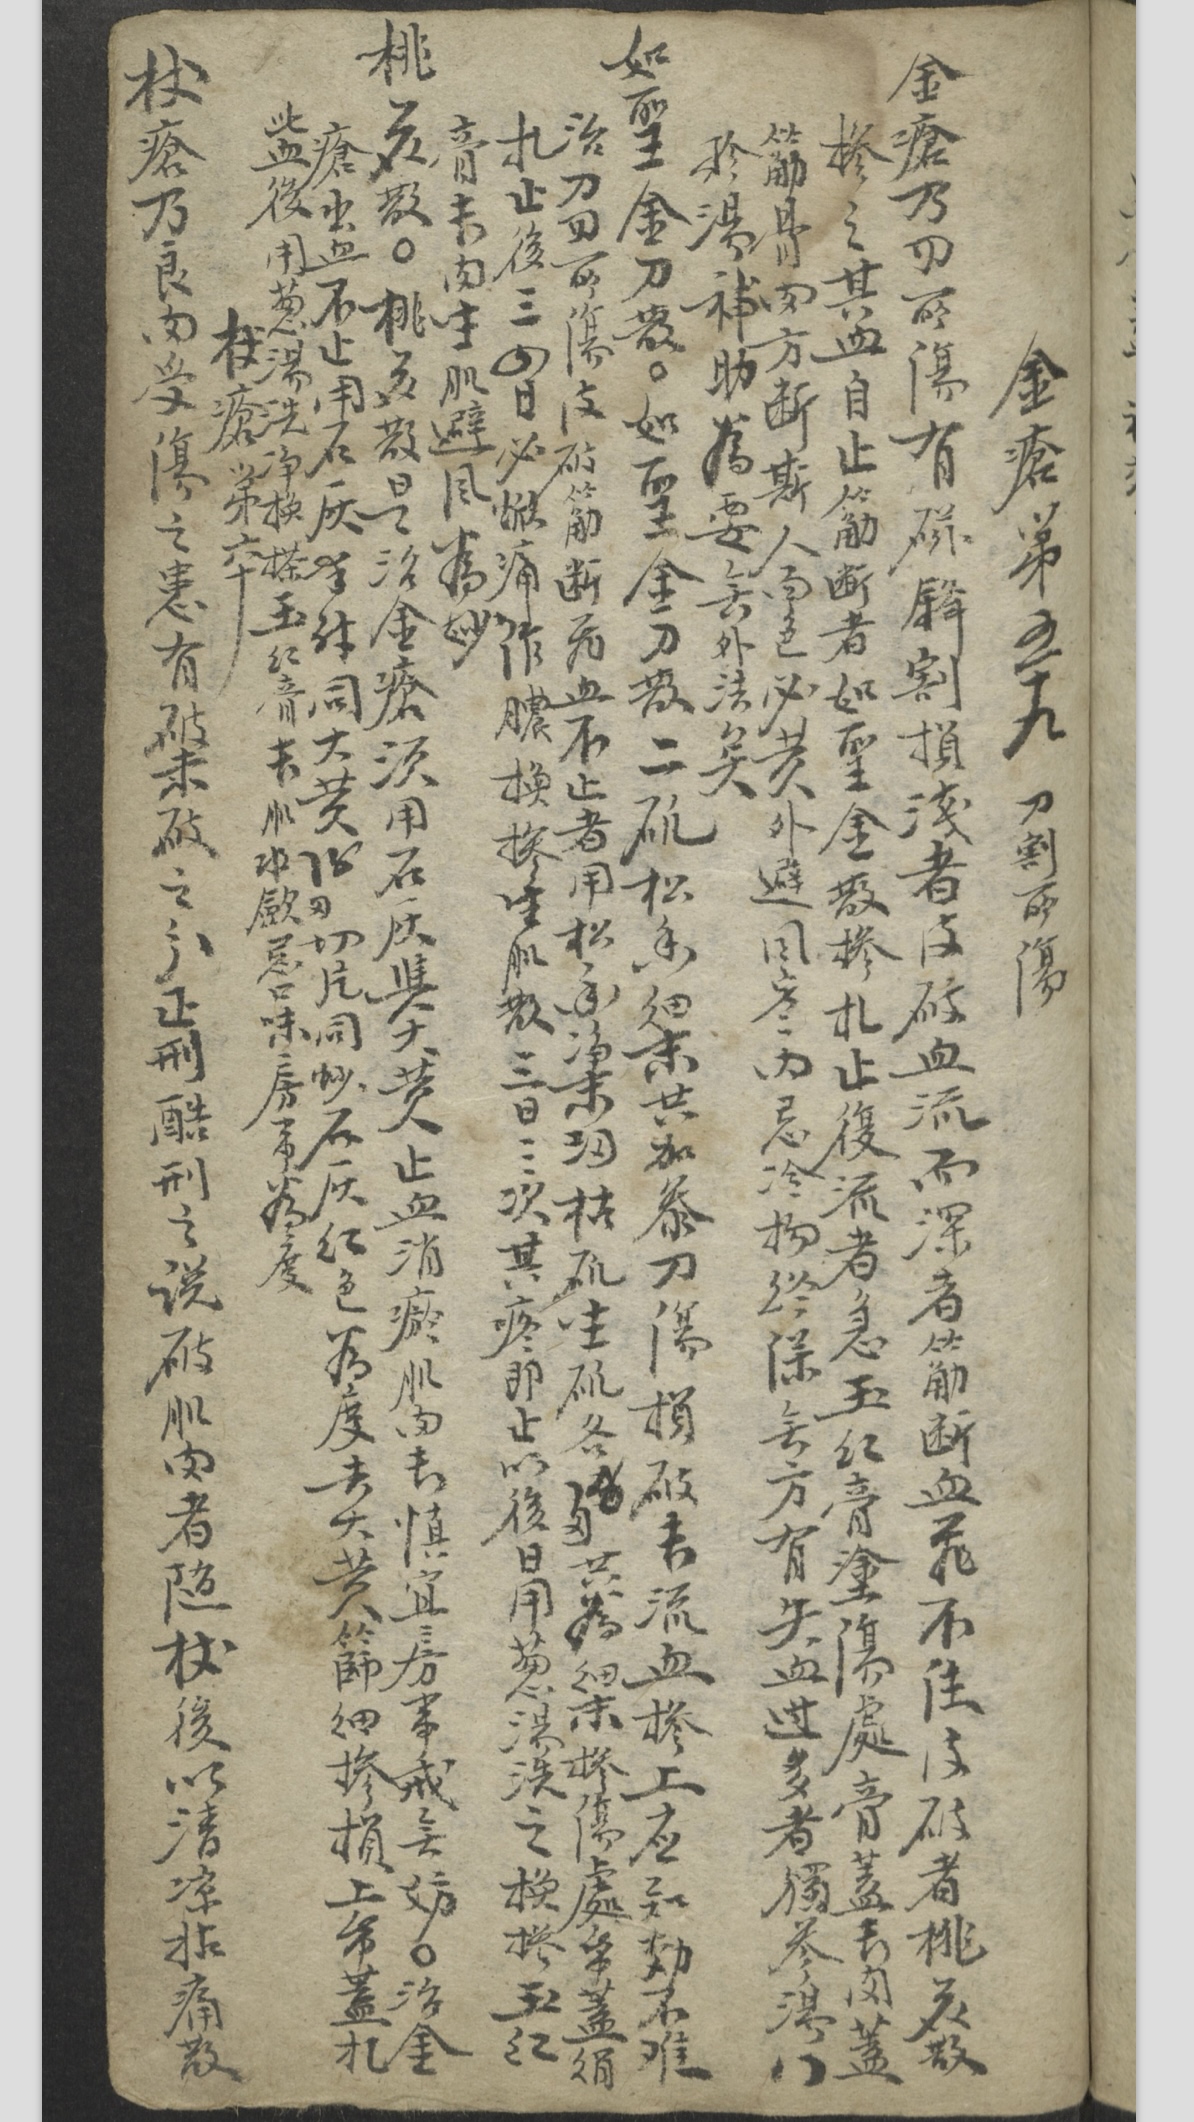 金瘡第五十九 刀割所傷
金瘡乃刃所傷有磁鋒割損淺者皮破血流而深者筋斷血飛不住皮破者桃花散
摻之其血自止筋斷者如聖金散摻扎止復流者急玉紅膏塗傷處膏蓋長肉蓋
筋骨肉方斷斯人面色必黃外避風寒內忌冷物終保無方有失血过多者獨參湯八
珍湯補助為要無外法矣
如聖金刀散。如聖金刀散二矾松香細末共加秦刀傷損破長流血摻上应知効不难
治刀刃所傷皮破筋斷飛血不止者用松香淨末枯矾生矾各 共為細末摻傷處帛蓋絹
扎止後三四日必焮痛作膿換摻生肌散三日二次其疼即止以後日用葱湯洗之換搽玉紅
膏長肉生肌避風為妙
桃花散。桃花散是治金瘡須用石灰與大黃止血消瘀肌肉長慎宜房事戒無妨。治金
瘡出血不止用石灰 同大黃 切片同炒石灰紅色為度去大黃篩細摻損上帛蓋扎
血後用葱湯洗淨換搽玉紅膏長肌 歛忌口味房事為度
杖瘡第六十
杖瘡乃良肉受傷之患有破未破之分正刑酷刑之說破肌肉者隨杖後以清凉拈痛散